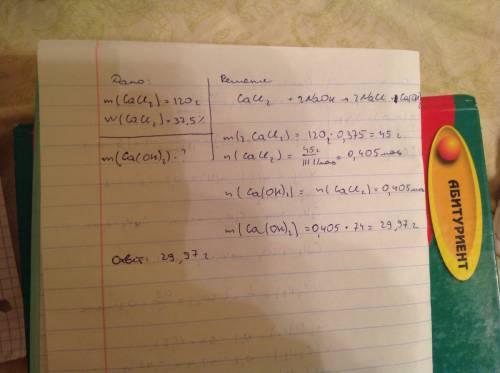 Дано:
m(CaCl₂) = 120 г
W(CaCl₂) = 37,5 %
m(Ca(OH)₂) - ?
Решение
CaCl₂ + 2NaOH → 2NaCl + Ca(OH)
m(г CaCl₂) = 120г · 0,375 = 45 г
n(CaCl₂) = 45г / 111 г/моль = 0,405 моль
n(Ca(OH)₂) = n(CaCl₂) = 0,405 моль
m(Ca(OH)₂) = 0,405 · 74 = 29,97 г
Ответ: 29,97 г
АБИТУРИЕНТ